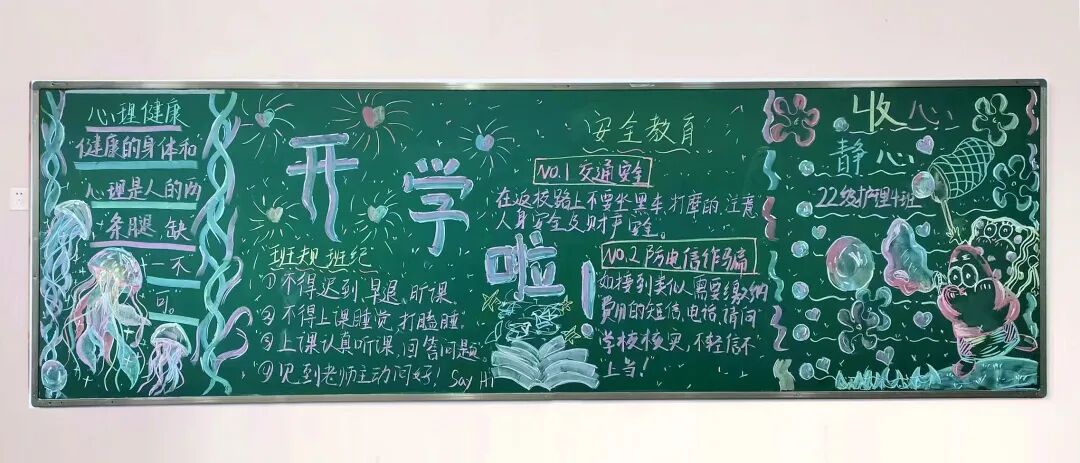 心理健康
健康的身体和
心理是人的两
条腿,缺
一不
可。
开学啦!
班规班纪
①不得迟到、早退、旷课、
②不得上课睡觉,打瞌睡
③上课认真听课,回答问题。
④见到老师主动问好! Say Hi
安全教育
NO.1 交通安全
在返校路上不要坐黑车、打摩的、注意
人身安全及财产安全。
NO.2 防电信诈骗
如接到类似,需要缴纳
费用的短信,电话,请向
学校核实,不轻信不
上当!
收心
静心
22级护理4班